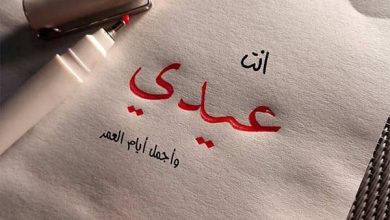 انت
عيدي
وأجمل أيام العمر